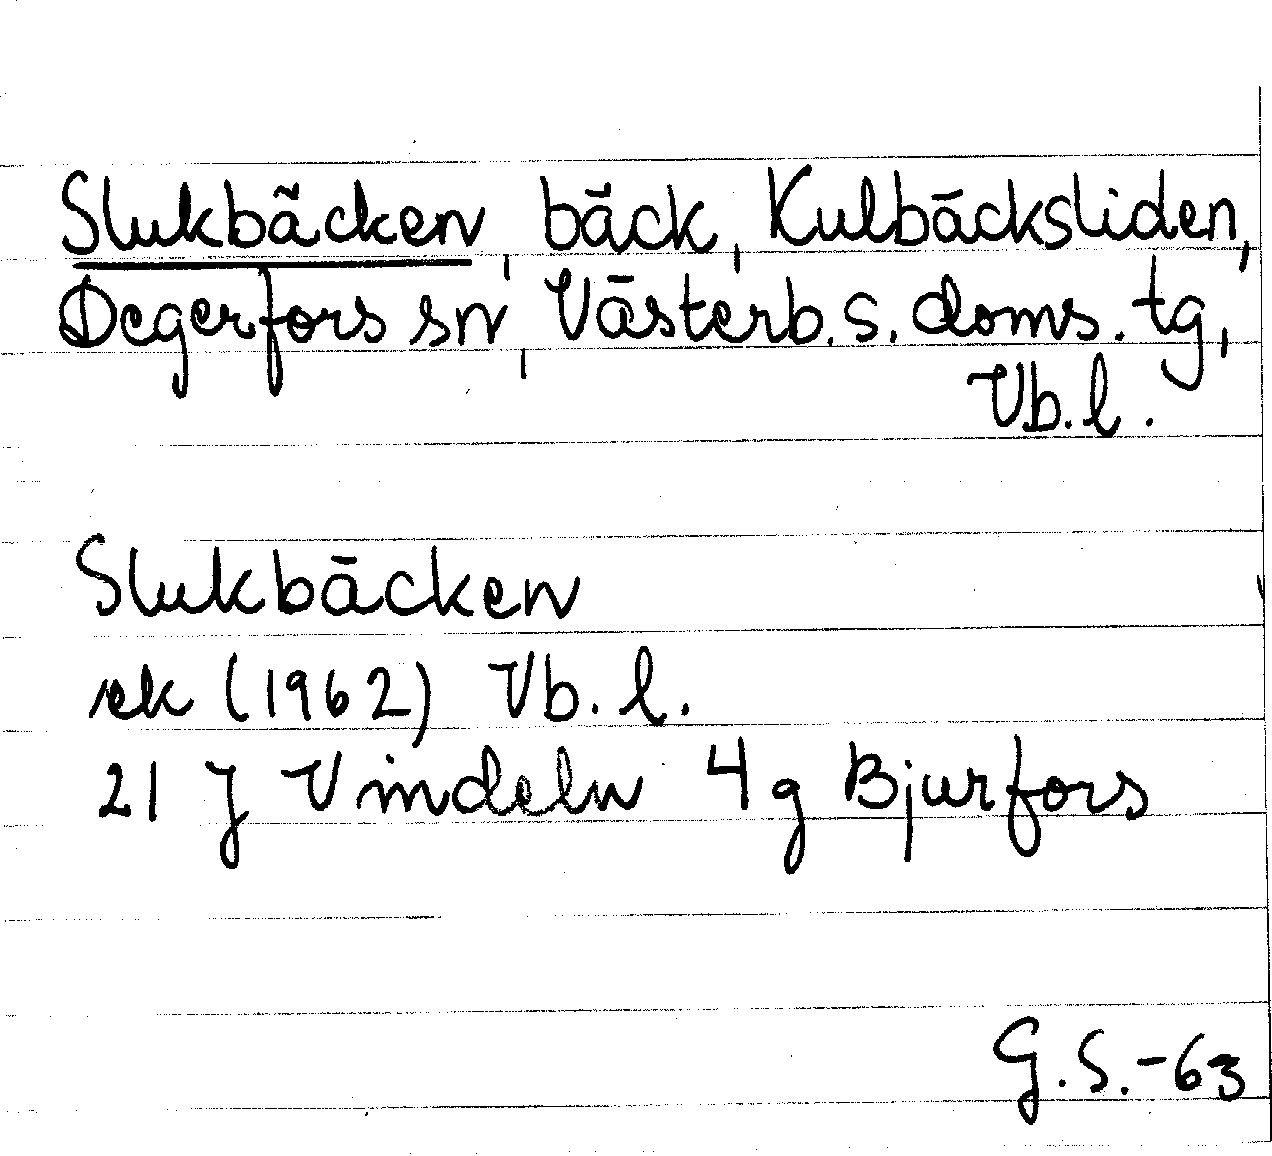 Slukbäcken, bäck, Kulbäcksliden,
Degerfors sn, Västerb.s. doms. tg,
Vb. l.
Slukbäcken
ek (1962) Vb. l.
21 J Vindeln 4 g Bjurfors
G.S.-63